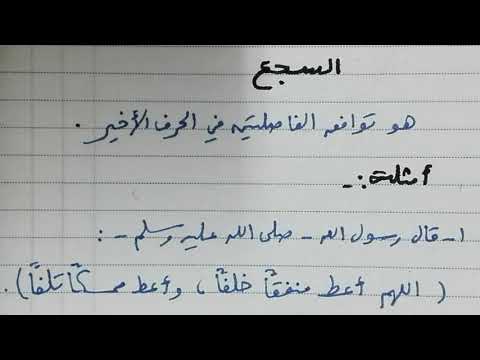 السجع
هو توافق الفاصلتين في الحرف الأخير .
أمثلة :-
١- قال رسول الله - صلى الله عليه وسلم - :
( اللهم أعط منفقاً خلفاً ، وأعط ممسكاً تلفاً ) .